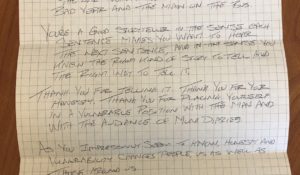 BAD YEAR AND THE MAN ON THE BUS.
YOU'RE A GOOD STORYTELLER IN THE SENSE EACH
SENTENCE MAKES YOU WANT TO HEAR
THE NEXT SENTENCE, AND IN THE SENSE YOU
KNOW THE RIGHT KIND OF STORY TO TELL AND
THE RIGHT WAY TO TELL IT.
THANK YOU FOR TELLING IT. THANK YOU FOR YOUR
HONESTY. THANK YOU FOR PLACING YOURSELF
IN A VULNERABLE POSITION WITH THE MAN AND
WITH THE AUDIENCE OF
AS YOU SEEM TO KNOW, HONESTY AND
VULNERABILITY CHANGES PEOPLE US AS WELL AS
AROUND US